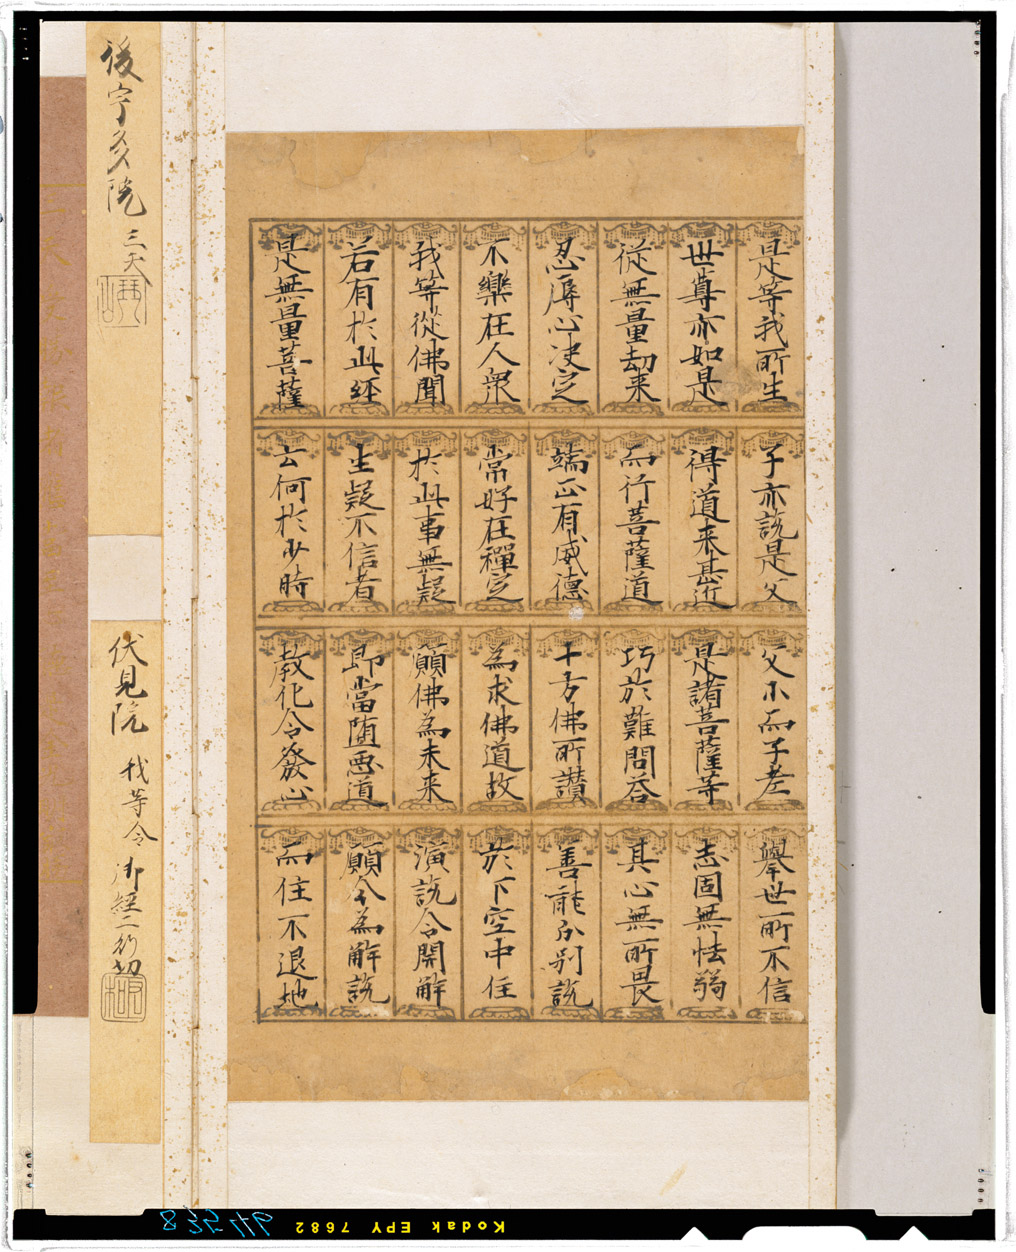 是等我所生 子亦説是父 父小而子老 舉世所不信
世尊亦如是 得道来甚近 是諸菩薩等 志固無怯弱
從無量劫来 而行菩薩道 巧於難問荅 其心無所畏
忍辱心决定 端正有威德 十方佛所讃 善能分别説
不樂在人衆 常好在禪定 為求佛道故 於下空中住
我等從佛聞 於此事無疑 願佛為未来 演説令開解
若有於此經 生疑不信者 即當堕惡道 願今為解説
是無量菩薩 云何於少時 教化令發心 而住不退地
後宇多院
伏見院 我等令 御經二行切
Kodak EPY 7682